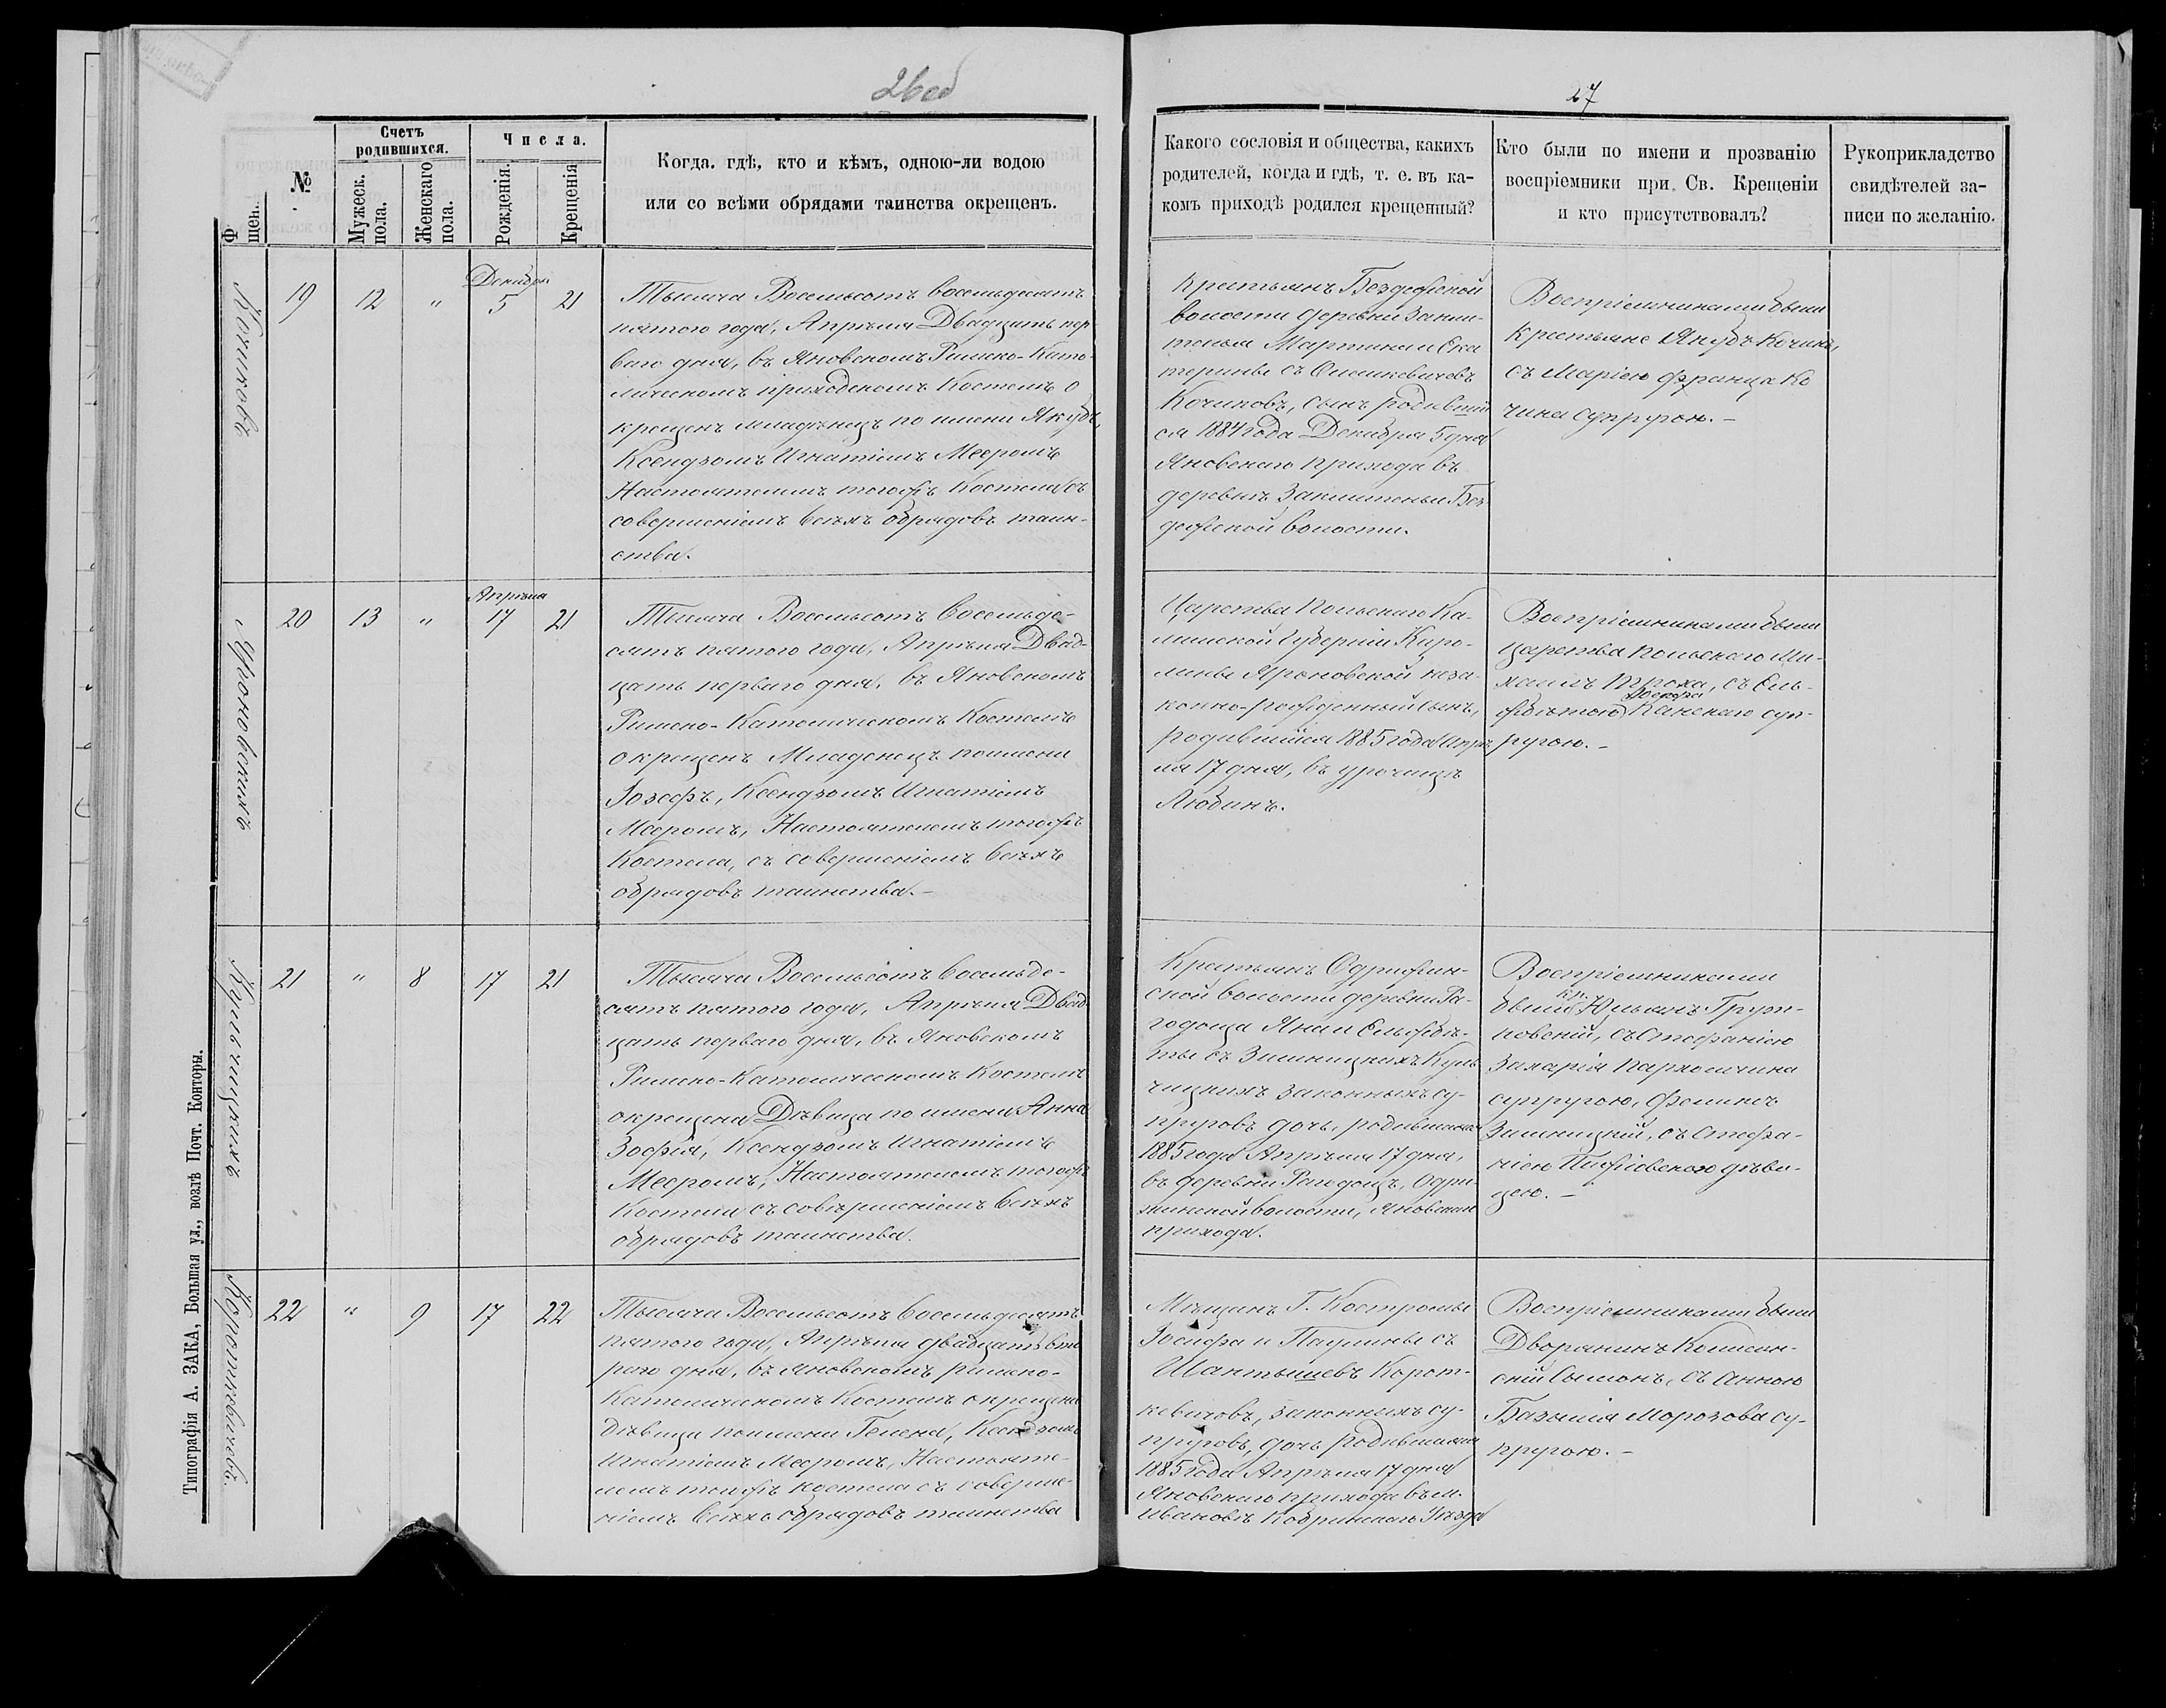 26об
27
№
Счетъ
родившихся.
Мужеск.
пола.
Женскаго
пола.
Числа.
Рожденія.
Крещенія
Когда. гдѣ, кто и кѣмъ, одною-ли водою
или со всѣми обрядами таинства окрещенъ.
Какого сословія и общества, какихъ
родителей, когда и гдѣ, т. е. въ ка-
комъ приходѣ родился крещенный?
Кто были по имени и прозванію
воспріемники при. Св. Крещеніи
и кто присутствовалъ?
Рукоприкладство
свидѣтелей за-
писи по желанію.
Кочиковъ
19
12
"
Декабря
5
21
Тысяча Восемьсотъ восемьдесятъ
пятого года, Апрѣля Двадцать пер
ваго дня, въ Яновскомъ Римско-Като-
лическомъ приходскомъ Костелѣ о
крещенъ младенецъ по имени Якубъ,
Ксендзомъ Игнатіемъ Мееромъ
Настоятелемъ тогожъ Костела съ
совершеніемъ всѣхъ обрядовъ таин-
ства.
Крестьянъ Бездежской
волости деревни
Мартина и Ека
терины съ Олешкевичевъ
Кочиковъ, сынъ родивший
ся 1884 года Декабря 5 дня
Яновскаго прихода въ
деревнѣ Без
дежской волости.
Воспріемниками были
Крестьяне Якубъ
съ Маріею Франца Ко
чика супругою. –
Яроновскихъ
20
13
"
Апрѣля
17
21
Тысяча Восемьсотъ Восемьде-
сятъ пятого года, Апрѣля Двад-
цать перваго дня, въ Яновскомъ
Римско-Католическомъ Костелѣ
окрещенъ Младенецъ по имени
Іозефъ, Ксендзомъ Игнатіемъ
Мееромъ, Настоятелемъ тогожъ
Костела, съ совершеніемъ всѣхъ
обрядовъ таинства. –
Царства Польскаго Ка-
лишской Губерніи Каро-
лины Яроновской неза-
конно-рожденный сынъ,
родившійся 1885 года Апрѣ
ля 17 дня, въ урочищѣ
Любинъ.
Воспріемниками были
Царства Польскаго Ми-
хаилъ съ Ель-
жбѣтою Канскаго суп-
ругою. –
Кульчицкихъ
21
"
8
17
21
Тысяча Восемьсотъ Восемьде-
сятъ пятого года, Апрѣля Двад
цать перваго дня, въ Яновскомъ
Римско-Католическомъ Костелѣ
окрещена Дѣвица по имени Анна
Зофія, Ксендзомъ Игнатіемъ
Мееромъ, Настоятелемъ тогожъ
Костела съ совершеніемъ всѣхъ
обрядовъ таинства.
Крестьянъ Одрижин-
ской волости деревни Ра-
годоща Яна и Ельжбѣ-
ты съ Зимницкихъ Куль
чицкихъ законныхъ су-
пруговъ дочь, родившаяся
1885 года Апрѣля 17 дня,
въ деревнѣ Рагодощѣ, Одри-
жинской волости, Яновскаго
прихода.
Воспріемниками
были кр. Юльянъ
съ Стефаніею
Захарія Пархомчика
супругою, Феликсъ
Зимницкій, съ Стефа-
ніею дѣви-
цею. –
Короткевичовъ.
22
"
9
17
22
Тысяча Восемьсотъ Восемьдесятъ
пятого года, Апрѣля двадцать вто
раго дня, въ Яновскомъ Римско-
Католическомъ Костелѣ окрещена
дѣвица по имени Гелена, Ксендзомъ
Игнатіемъ Мееромъ, Настояте-
лемъ тогожъ костела съ соверше-
ніемъ всѣхъ обрядовъ таинства
Мѣщанъ Г. Костромы
Іосифа и Паулины съ
Шантышевъ Корот-
кевичовъ, законныхъ су-
пруговъ, дочь родившаяся
1885 года Апрѣля 17 дня
Яновскаго прихода въ м.
Ивановѣ Кобринскаго Уѣзда
Воспріемниками были
Дворянинъ
Сымонъ, съ Анною
Базылія Морозова су-
пругою. –
Типографія А. ЗАКА, Большая ул., возлѣ Почт. Конторы.